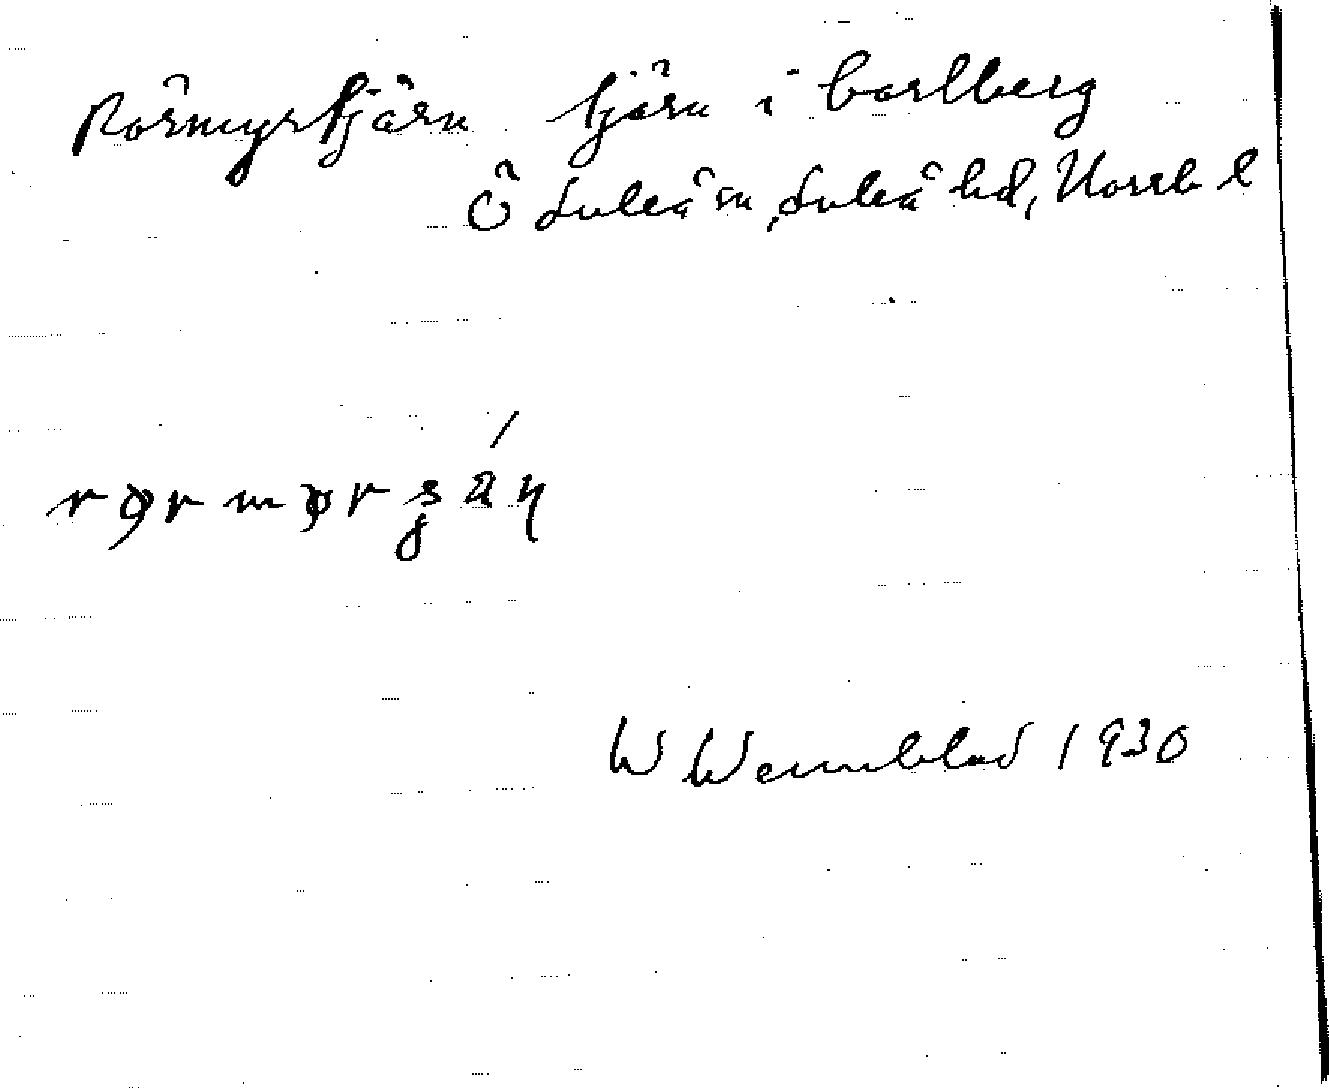 Rörmyrtjärn tjärn i Carlberg
Ö Luleå sn, Luleå hd, Norrb l
W Wennblad 1930